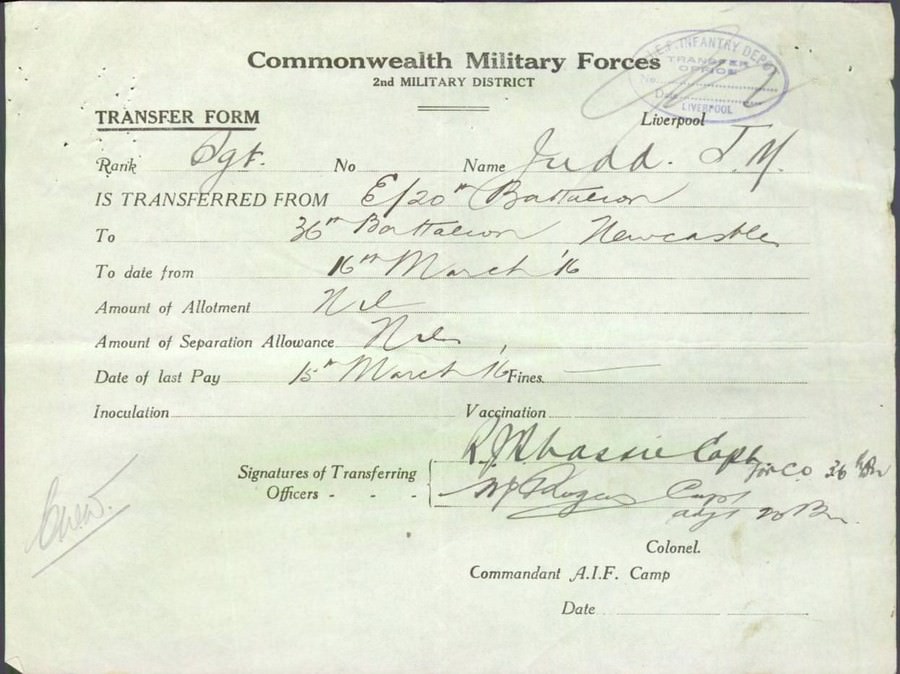 Commonwealth Military Forces
2nd MILITARY DISTRICT
A.I.F. INFANTRY DEPOT
TRANSFER OFFICE
No.
Date
LIVERPOOL
TRANSFER FORM
Liverpool
Rank Sgt. No Name Judd. J.M.
IS TRANSFERRED FROM E/20th Battalion
To 36th Battalion Newcastle
To date from 16th March '16
Amount of Allotment Nil
Amount of Separation Allowance Nil
Date of last Pay 15th March '16 Fines —
Inoculation Vaccination
Capt for CO. 36th Bn
Signatures of Transferring
Officers - - -
Rogers Capt
adjt 20 Bn
Colonel.
Commandant A.I.F. Camp
Date